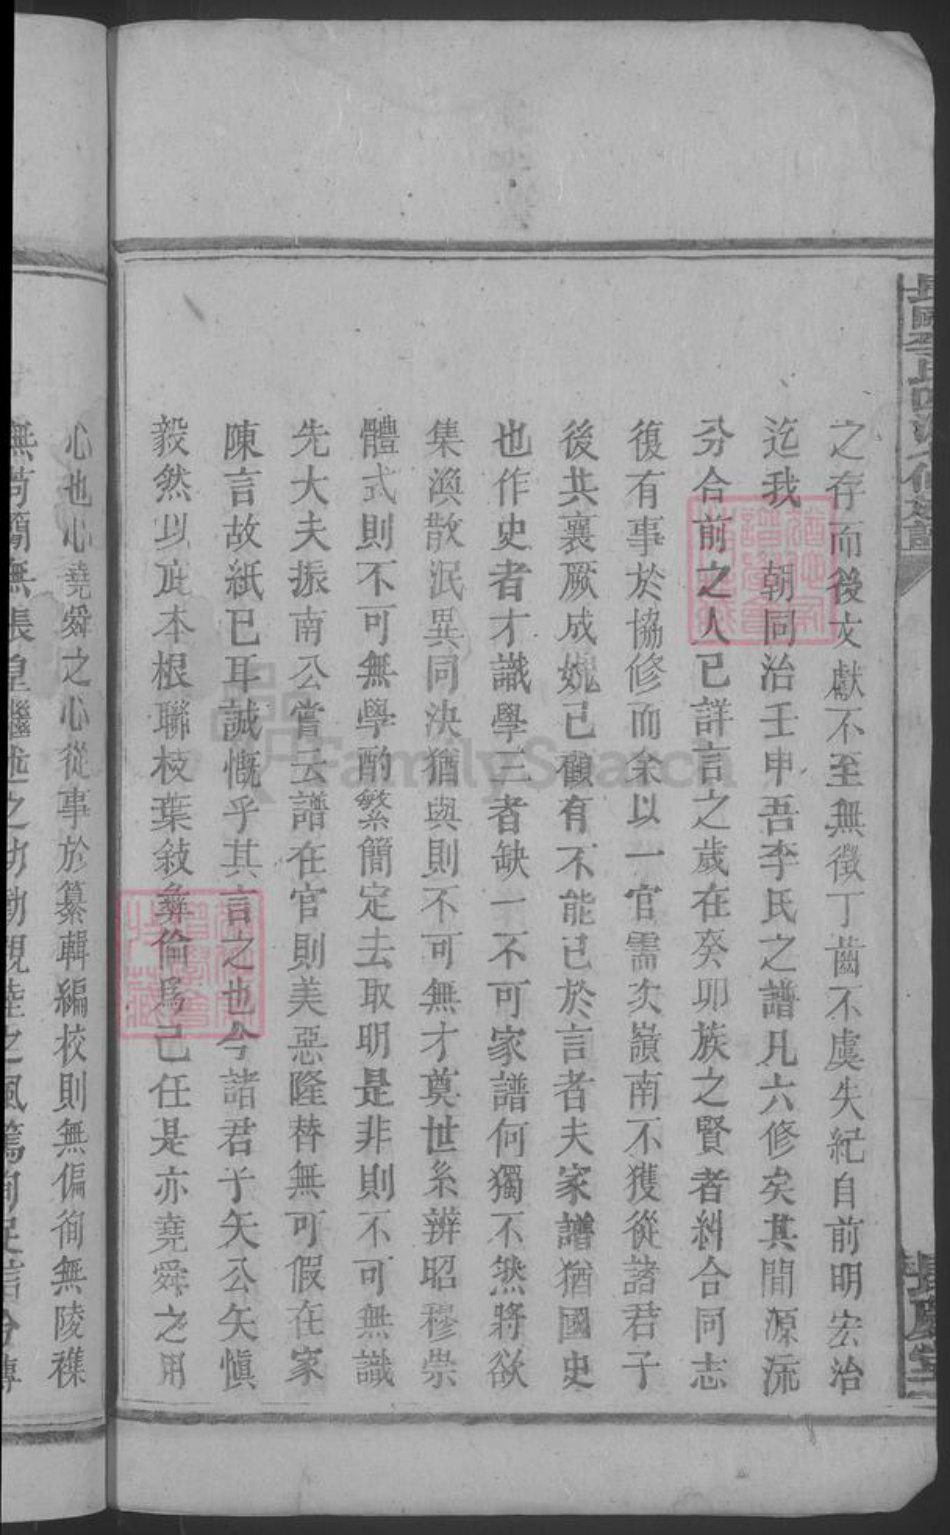 之存而後文獻不至無徵丁齒不虞失紀自前明宏治
迄我　朝同治壬申吾李氏之譜凡六修矣其間源流
分合前之人已詳言之歲在癸卯族之賢者糾合同志
復有事於協修而余以一官需次嶺南不獲從諸君子
後共襄厥成媿已顧有不能已於言者夫家譜猶國史
也作史者才識學三者缺一不可家譜何獨不然將欲
集渙散泯異同決猶與則不可無才奠世系辨昭穆崇
體式則不可無學酌繁簡定去取明是非則不可無識
先大夫振南公嘗云譜在官則美惡隆替無可假在家
陳言故紙已耳誠慨乎其言之也今諸君子矢公矢愼
毅然以庇本根聯枝葉敍彝倫爲己任是亦堯舜之用
心也心堯舜之心從事於纂輯編校則無偏徇無陵襍
無苟簡無張皇繼述之功勤親睦之風篤徇足信今傳
FamilySearch